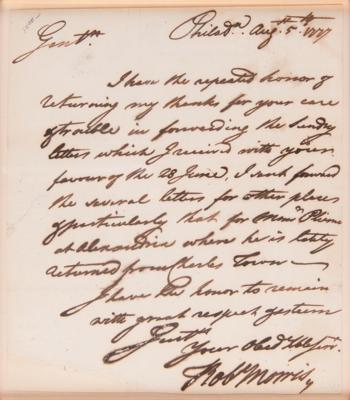 Gentⁿ
Philadᵃ. Augˢᵗ 5ᵗʰ 1777
I have the repeated honor of
returning my thanks for your care
& trouble in forwarding the sundry
letters which I received with your
favour of the 28 June, I have forwᵈ
the several letters for other places
& particularly that for Monsʳ
at Alexandria where he is lately
returned from Charles Town —
I have the honor to remain
with great respect & esteem
Gentⁿ
Your Obedᵗ hble servᵗ
Robᵗ Morris